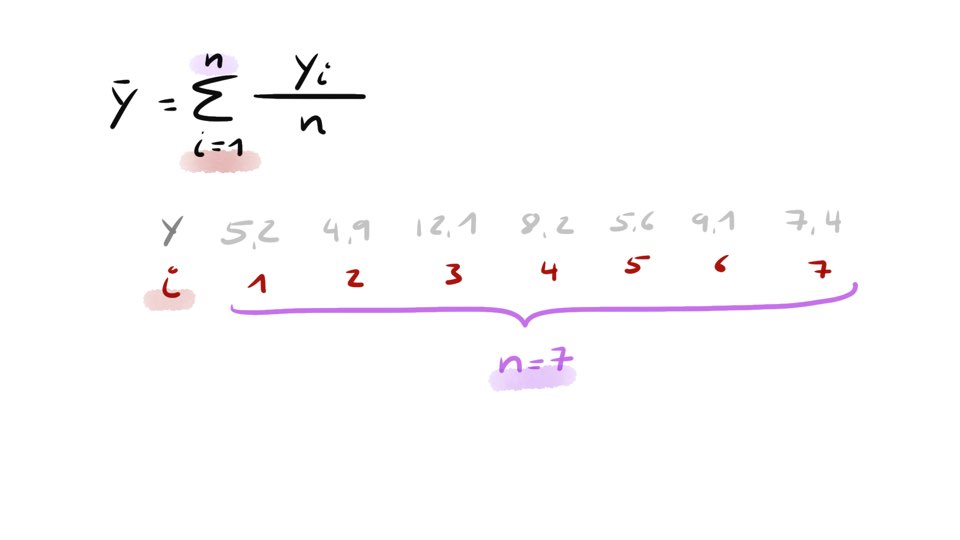 ȳ = Σ (i=1, n) yᵢ / n
y 5,2 4,9 12,1 8,2 5,6 9,1 7,4
i 1 2 3 4 5 6 7
n=7